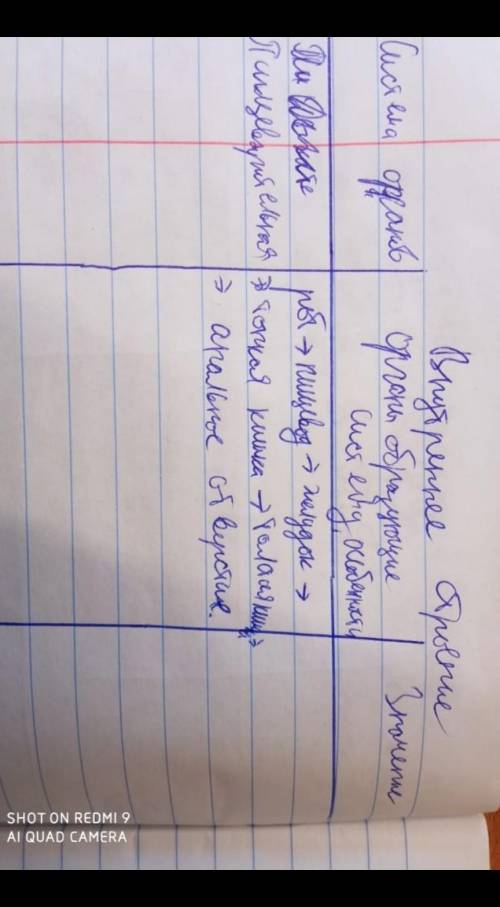 Внутреннее строение
Система органов
органы образующие
систему, особенности
Значение
Пищеварительная
рот → пищевод → желудок →
→ тонкая кишка → толстая киш →
→ анальное отверстие.
SHOT ON REDMI 9
AI QUAD CAMERA